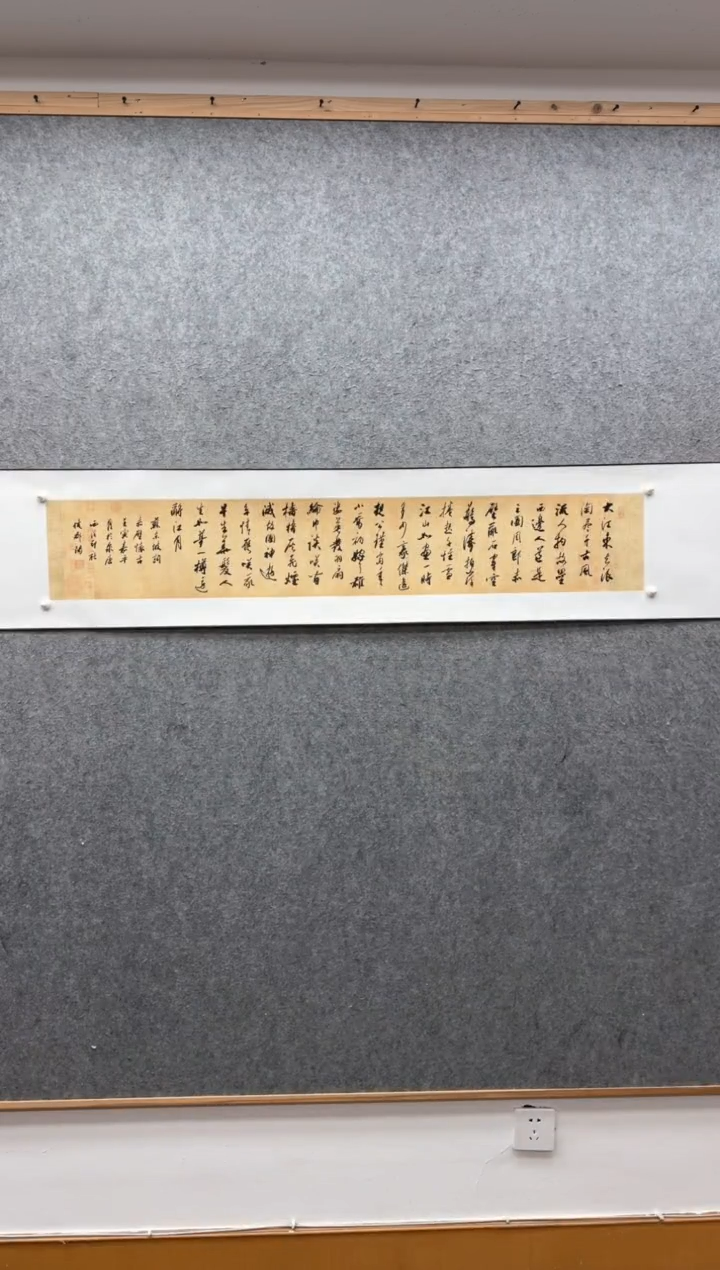 大江東去浪
淘盡千古風
流人物故壘
西邊人道是
三國周郎赤
壁亂石崩雲
驚濤拍岸
捲起千堆雪
江山如畫一時
多少豪傑遙
想公瑾當年
小喬初嫁雄
姿英發羽扇
綸巾談笑間
檣櫓灰飛煙
滅故國神遊
多情應笑我
早生華髮人
生如夢一樽還
酹江月
蘇東坡詞
赤壁懷古
壬寅嘉平
月於泉唐
西泠印社